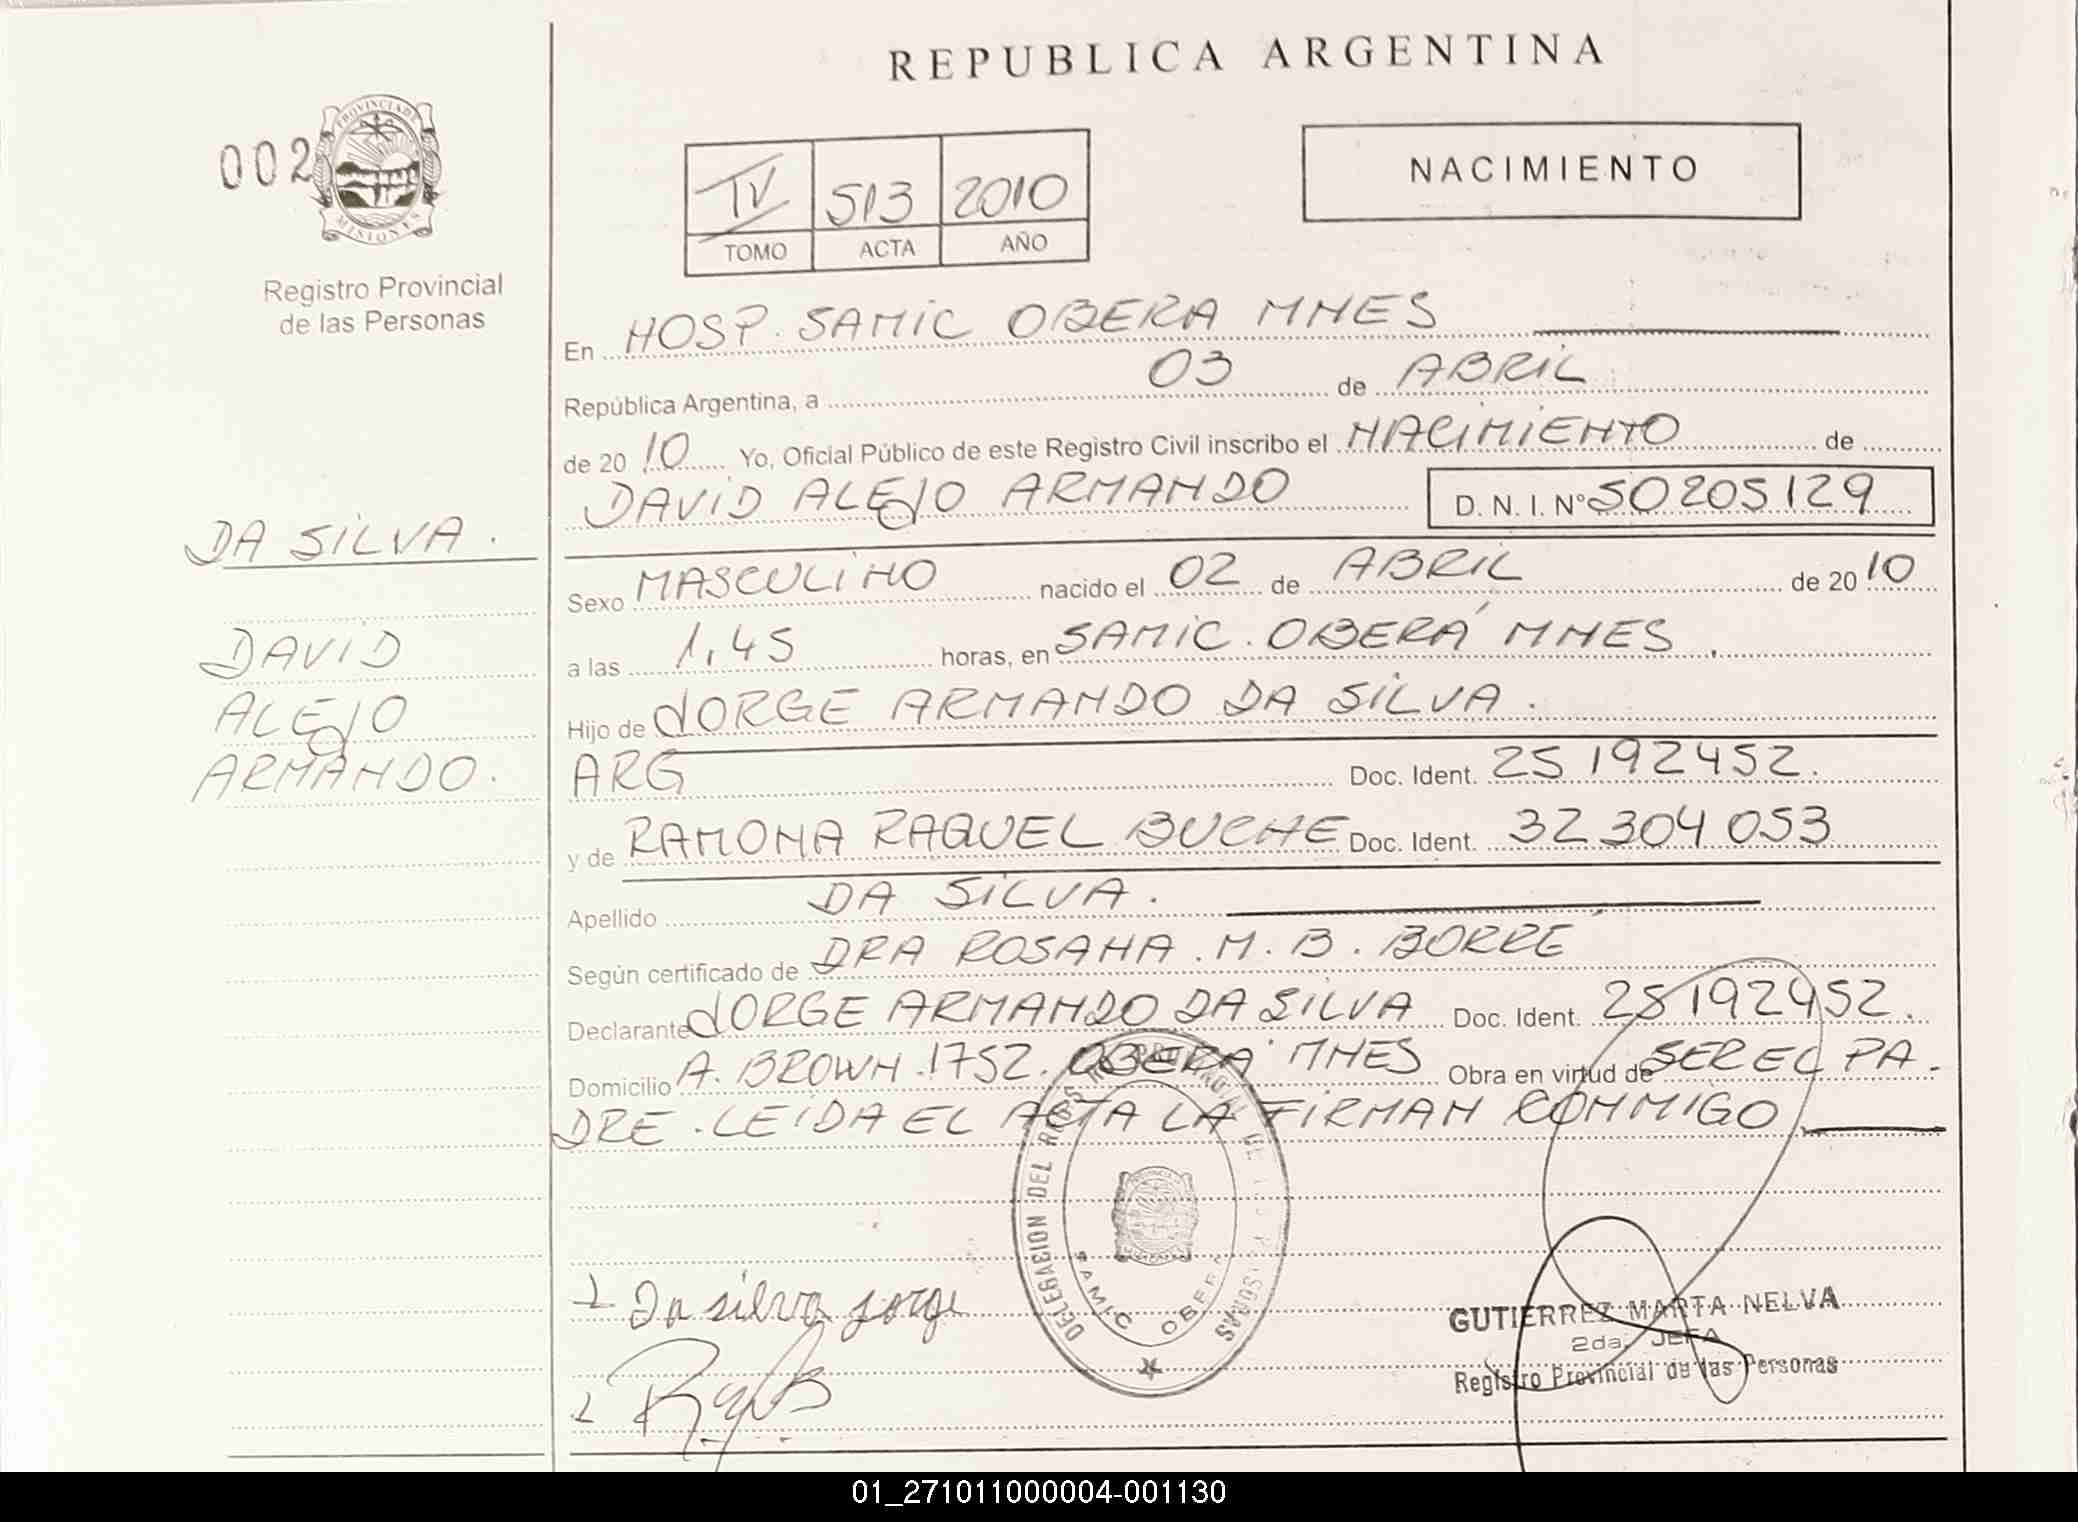 REPUBLICA ARGENTINA
002
PROVINCIA DE
MISIONES
Registro Provincial
de las Personas
IV 513 2010
TOMO ACTA AÑO
NACIMIENTO
En HOSP. SAMIC OBERA MNES
República Argentina, a 03 de ABRIL
de 20 10 Yo, Oficial Público de este Registro Civil inscribo el NACIMIENTO de
DAVID ALEJO ARMANDO D. N. I. Nº 50205129
DA SILVA.
DAVID
ALEJO
ARMANDO.
Sexo MASCULINO nacido el 02 de ABRIL de 20 10
a las 1,45 horas, en SAMIC. OBERÁ MNES.
Hijo de JORGE ARMANDO DA SILVA.
ARG Doc. Ident. 25 192452.
y de RAMONA RAQUEL BUCHE Doc. Ident. 32 304 053
Apellido DA SILVA.
Según certificado de DRA ROSANA. M. B. BORRE
Declarante JORGE ARMANDO DA SILVA Doc. Ident. 25192452.
Domicilio A. BROWN. 1752. OBERA MNES Obra en virtud de SER EL PA-
DRE. LEIDA EL ACTA LA FIRMAN CONMIGO
DELEGACION DEL REGISTRO PROVINCIAL DE LAS PERSONAS
SAMIC OBERA
Da silva Jorge
GUTIERREZ MARTA NELVA
2da. JEFA
Registro Provincial de las Personas
01_271011000004-001130